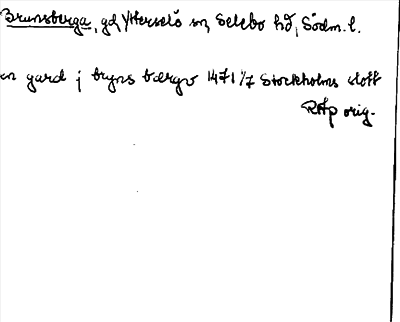 Brunsberga, gd, Ytterselö sn, Selebo hd, Södm. l.
en gard j bryns bærgo 1471 1/7 Stockholms slott
RAp orig.